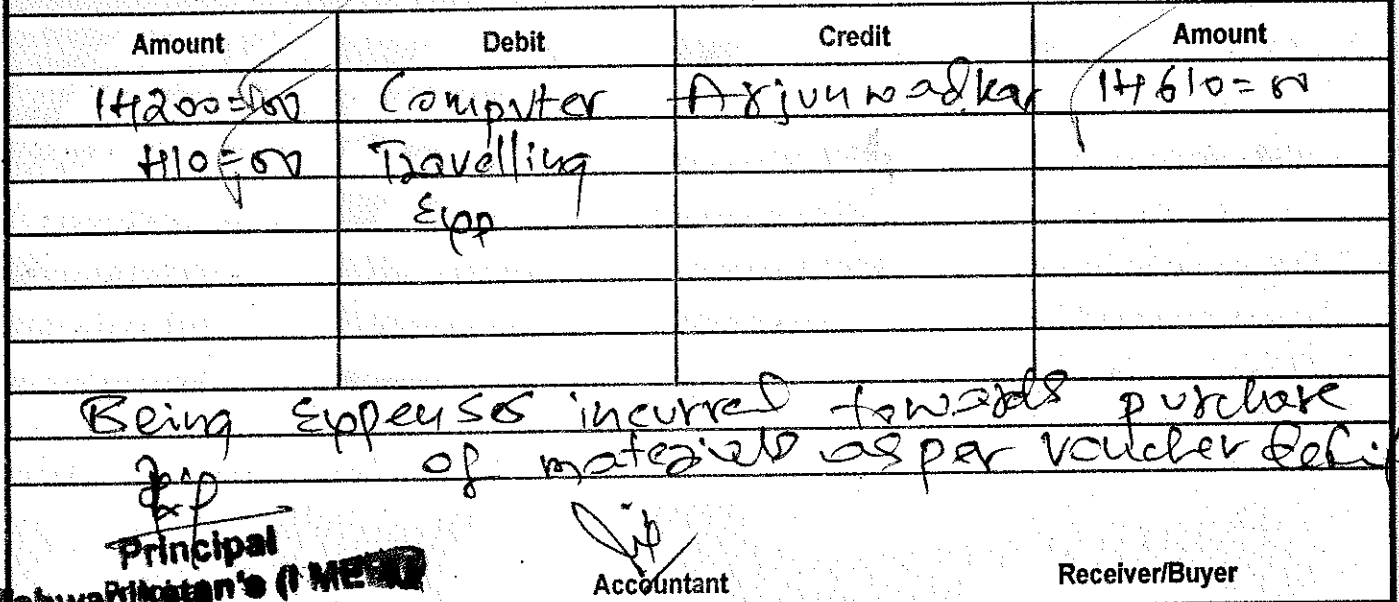 Amount Debit Credit Amount
14200=00 Computer Arjunwadkar 14610=00
410=00 Travelling
Exp
Being Expenses incurred towards purchase
of materials as per voucher
Principal
Accountant Receiver/Buyer